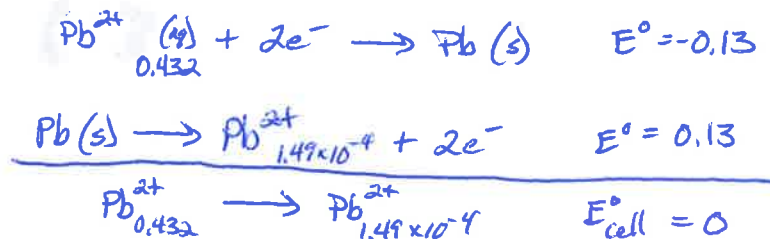 Pb²⁺ (aq) 0.432 + 2e⁻ → Pb (s) E° = -0.13
Pb (s) → Pb²⁺ 1.49×10⁻⁴ + 2e⁻ E° = 0.13
Pb²⁺ 0.432 → Pb²⁺ 1.49×10⁻⁴ E°cell = 0